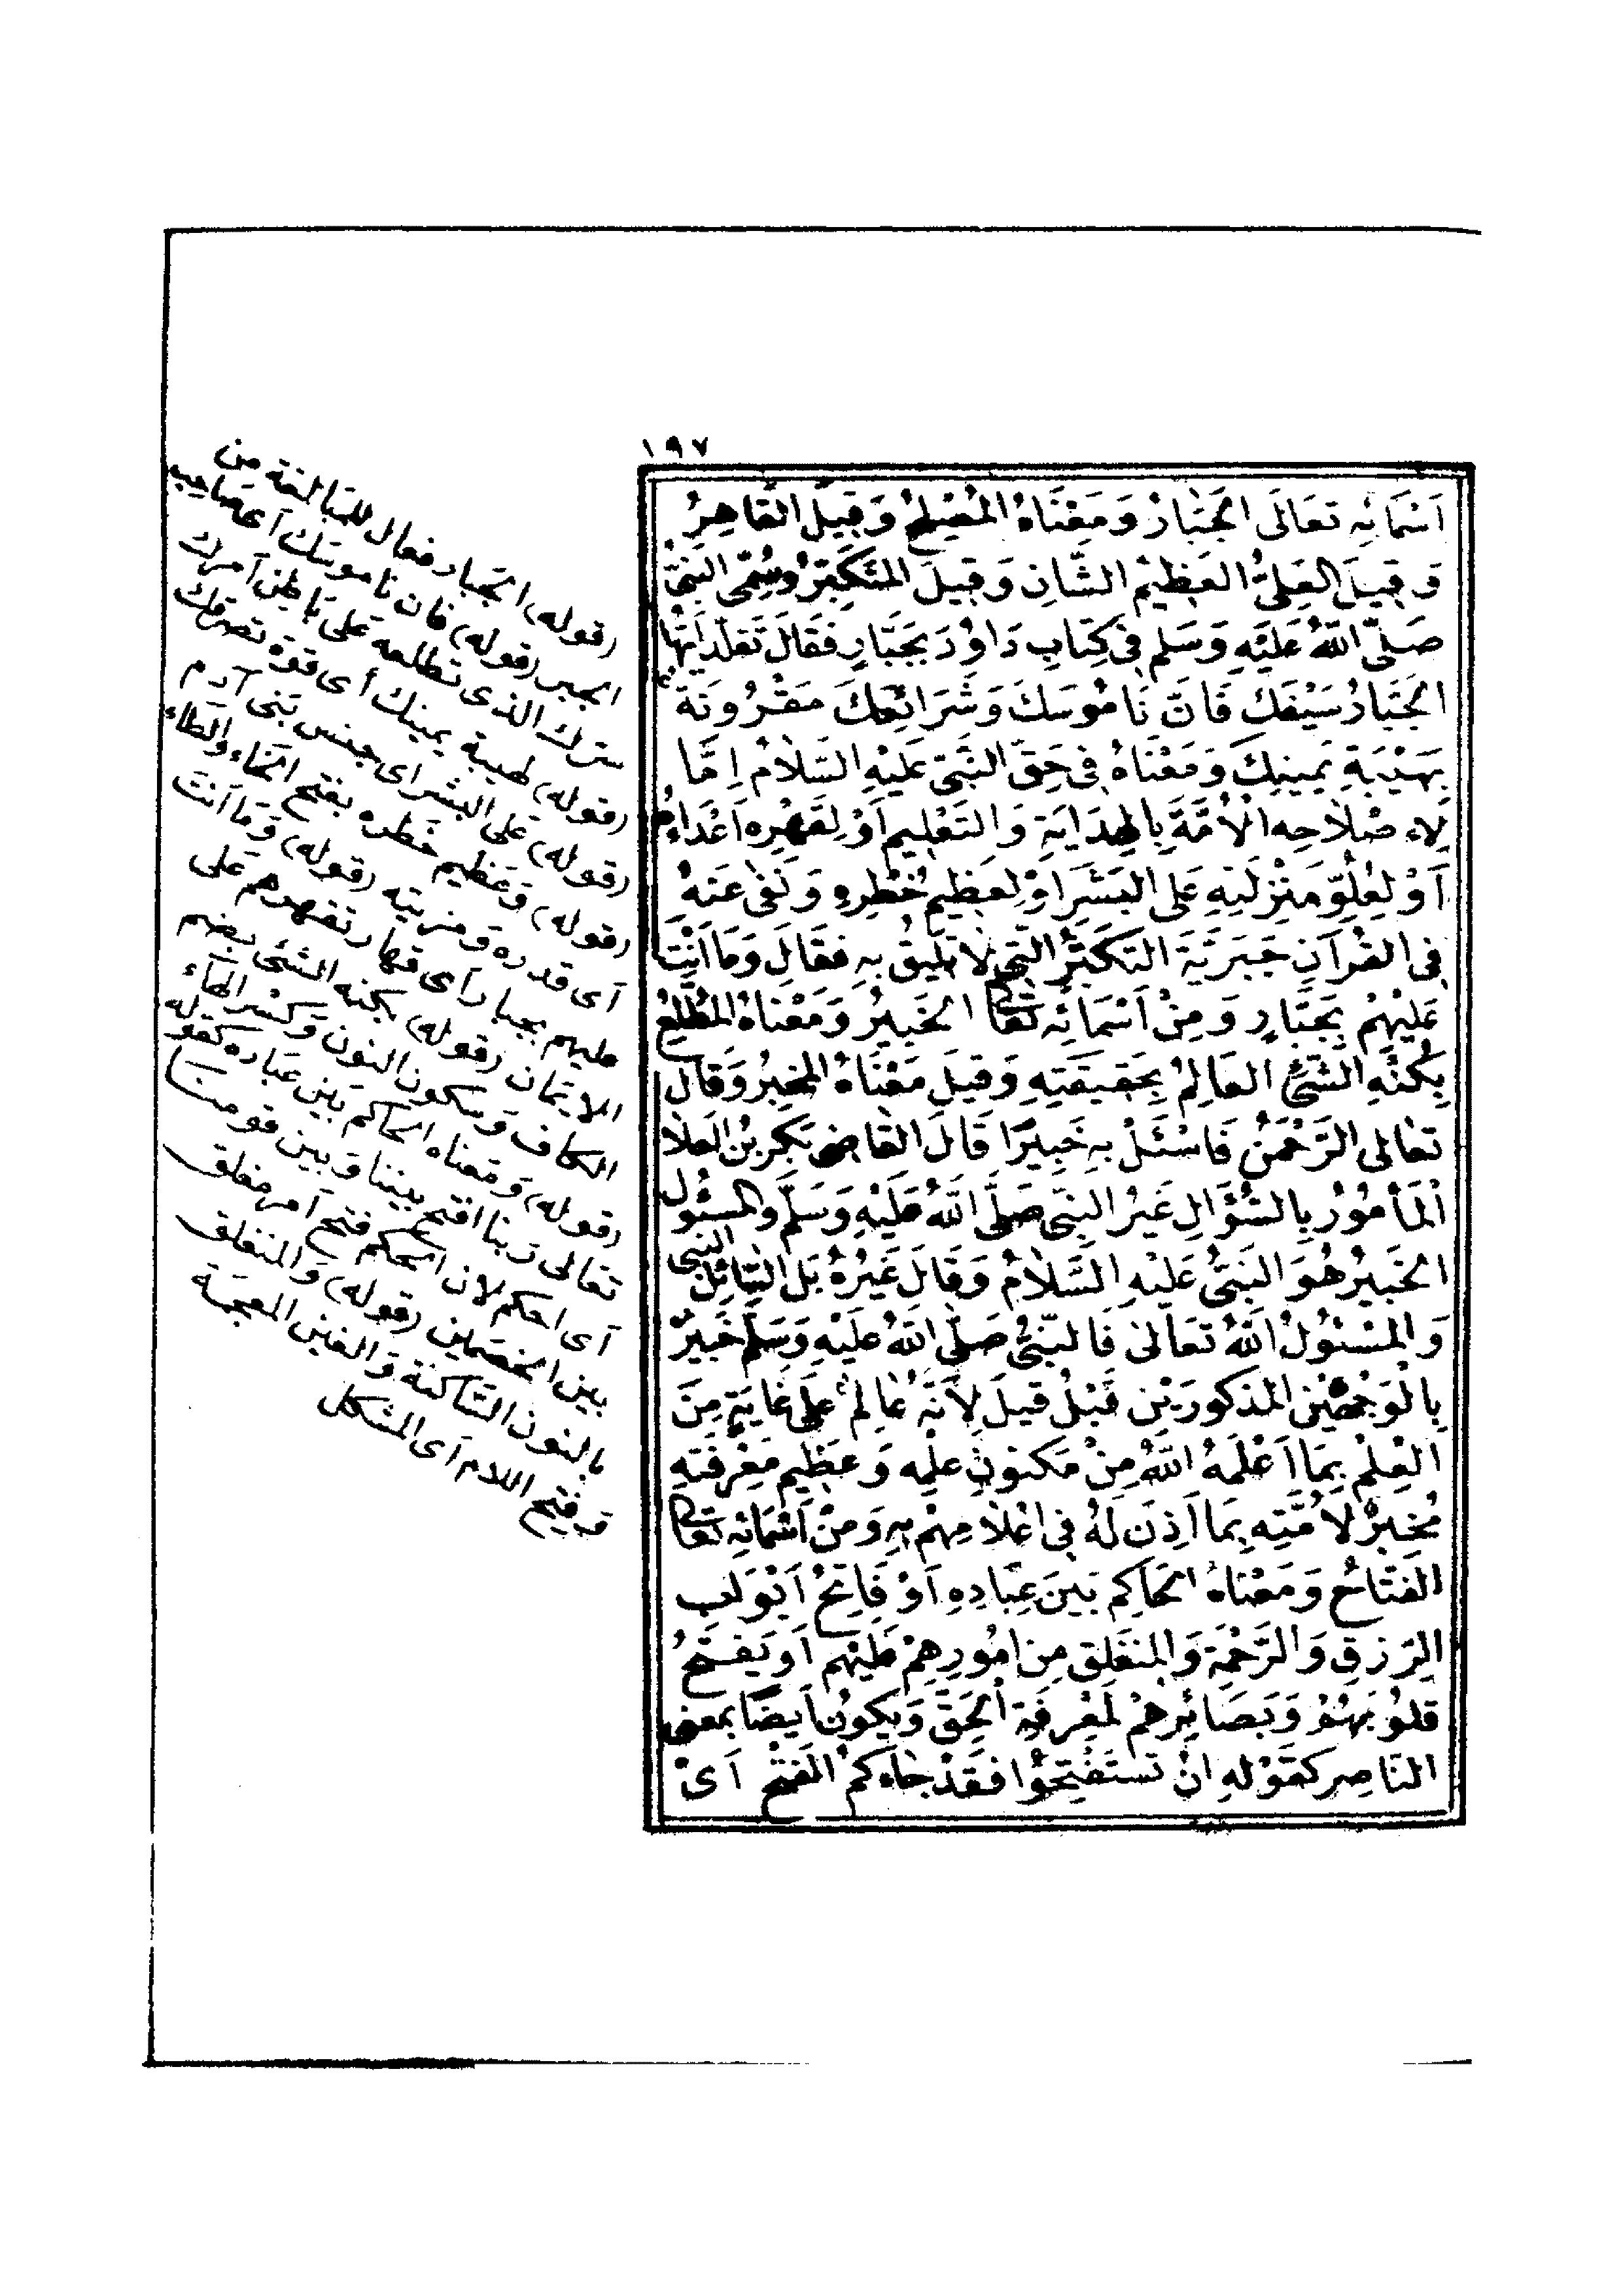 ١٩٧
اَسْمَائِهِ تَعَالَى الْجَبَّارُ وَمَعْنَاهُ الْمُصْلِحُ وَقِيلَ الْقَاهِرُ
وَقِيلَ الْعَلِىُّ الْعَظِيْمُ الشَّانِ وَقِيلَ الْمُتَكَبِّرُ وَسُمِّىَ النَّبِىُّ
صَلَّى اللَّهُ عَلَيْهِ وَسَلَّمَ فِى كِتَابِ دَاوُدَ بِجَبَّارٍ فَقَالَ تَقَلَّدْ اَيُّهَا
الْجَبَّارُ سَيْفَكَ فَاِنَّ نَامُوسَكَ وَشَرَائِعَكَ مَقْرُونَةٌ
بِهَيْبَةِ يَمِينِكَ وَمَعْنَاهُ فِى حَقِّ النَّبِىِّ عَلَيْهِ السَّلَامُ اِمَّا
لِاِصْلَاحِهِ الْاُمَّةَ بِالْهِدَايَةِ وَالتَّعْلِيمِ اَوْ لِقَهْرِهِ اَعْدَاءَهُ
اَوْ لِعُلُوِّ مَنْزِلَتِهِ عَلَى الْبَشَرِ اَوْ لِعَظِيمِ خَطَرِهِ وَنَفٰى عَنْهُ
فِى الْقُرْآنِ جَبَرِيَّةَ التَّكَبُّرِ الَّتِى لَا تَلِيقُ بِهِ فَقَالَ وَمَا اَنْتَ
عَلَيْهِمْ بِجَبَّارٍ وَمِنْ اَسْمَائِهِ تَعَالَى الْخَبِيرُ وَمَعْنَاهُ الْمُطَّلِعُ
بِكُنْهِ الشَّئِ الْعَالِمُ بِحَقِيقَتِهِ وَقِيلَ مَعْنَاهُ الْمُخْبِرُ وَقَالَ
تَعَالَى الرَّحْمٰنُ فَاسْئَلْ بِهِ خَبِيرًا قَالَ الْقَاضِى بَكْرُ بْنُ الْعَلَا
الْمَأْمُورُ بِالسُّؤَالِ غَيْرُ النَّبِىِّ صَلَّى اللَّهُ عَلَيْهِ وَسَلَّمَ وَالْمَسْئُولُ
الْخَبِيرُ هُوَ النَّبِىُّ عَلَيْهِ السَّلَامُ وَقَالَ غَيْرُهُ بَلِ السَّائِلُ النبى
وَالْمَسْئُولُ اللَّهُ تَعَالٰى فَالنَّبِىُّ صَلَّى اللَّهُ عَلَيْهِ وَسَلَّمَ خَبِيرٌ
بِالْوَجْهَيْنِ الْمَذْكُورَيْنِ قَبْلُ قِيلَ لِاَنَّهُ عَالِمٌ عَلَى غَايَةٍ مِنَ
الْعِلْمِ بِمَا اَعْلَمَهُ اللَّهُ مِنْ مَكْنُونِ عِلْمِهِ وَعَظِيمِ مَعْرِفَتِهِ
مُخْبِرٌ لِاُمَّتِهِ بِمَا اَذِنَ لَهُ فِى اِعْلَامِهِمْ بِهِ وَمِنْ اَسْمَائِهِ تَعَالَى
الْفَتَّاحُ وَمَعْنَاهُ الْحَاكِمُ بَيْنَ عِبَادِهِ اَوْ فَاتِحُ اَبْوَابِ
الرِّزْقِ وَالرَّحْمَةِ وَالْمُنْغَلِقِ مِنْ اُمُورِهِمْ عَلَيْهِمْ اَوْ يَفْتَحُ
قُلُوبَهُمْ وَبَصَائِرَهُمْ لِمَعْرِفَةِ الْحَقِّ وَيَكُونُ اَيْضًا بِمَعْنَى
النَّاصِرِ كَقَوْلِهِ اِنْ تَسْتَفْتِحُوا فَقَدْ جَاءَكُمُ الْفَتْحُ اَىْ
(قوله) الجبار فعال للمبالغة من
الجبر (قوله) فان ناموسك اى صاحب
سرك الذى تطلعه على باطن امرك
(قوله) هيبة يمينك أى قوة تصرفك
(قوله) على البشر اى جنس بنى آدم
(قوله) وعظيم خطره بفتح الخاء والطاء
اى قدره ومزيته (قوله) وما انت
عليهم بجبار اى قهار تقهرهم على
الايمان (قوله) بكنه الشئ بضم
الكاف وسكون النون وكسر الهاء
(قوله) ومعناه الحاكم بين عباده كقوله
تعالى ربنا افتح بيننا وبين قومنا
اى احكم لان الحكم فتح امر مغلق
بين الخصمين (قوله) والمنغلق
بالنون الساكنة والغين المعجمة
وفتح اللام اى المشكل